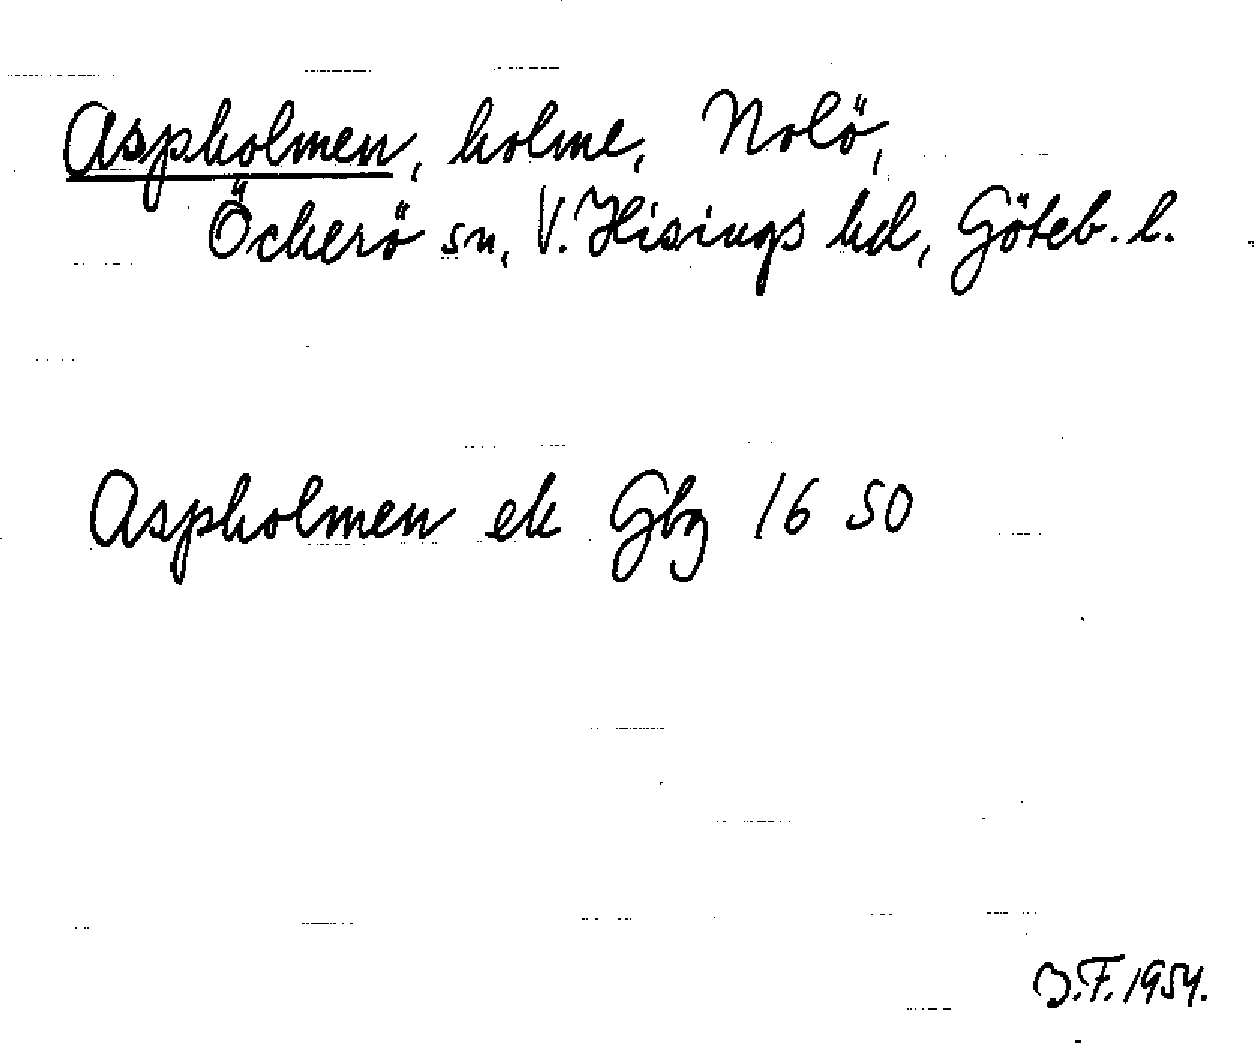 Aspholmen, holme, Nolö,
Öckerö sn, V. Hisings hd, Göteb. l.
Aspholmen ek Gbg 16 SO
D.F. 1954.